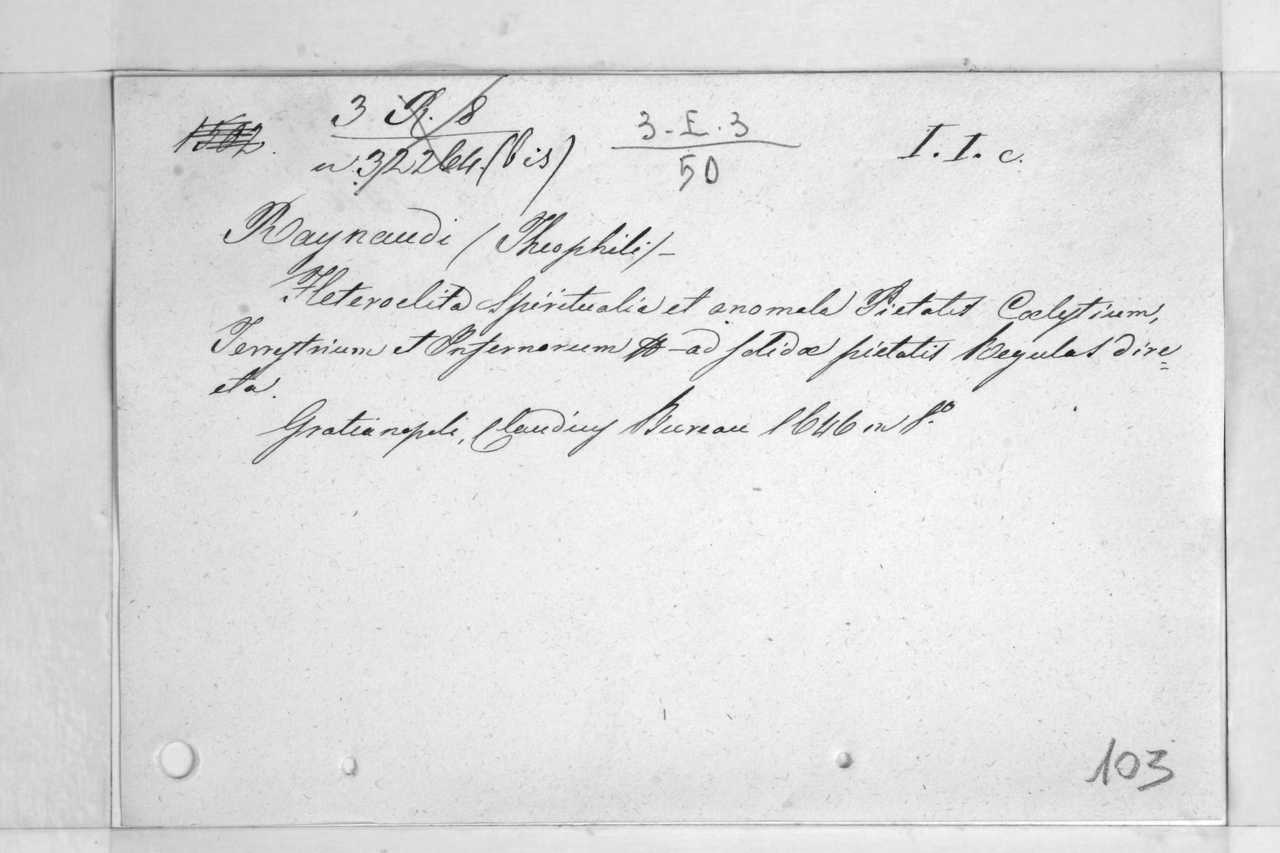 1502. 3 R. 8 3-E.3 I. I. c.
n. 32264. (bis) 50
Raynaudi (Theophili) -
Heteroclita Spiritualia et anomala Pietatis Cœlestium,
Terrestrium et Infernorum - ad solidæ pietatis Regulas dire=
cta.
Gratianopoli, Claudius Bureau 1646 in 8º.
103